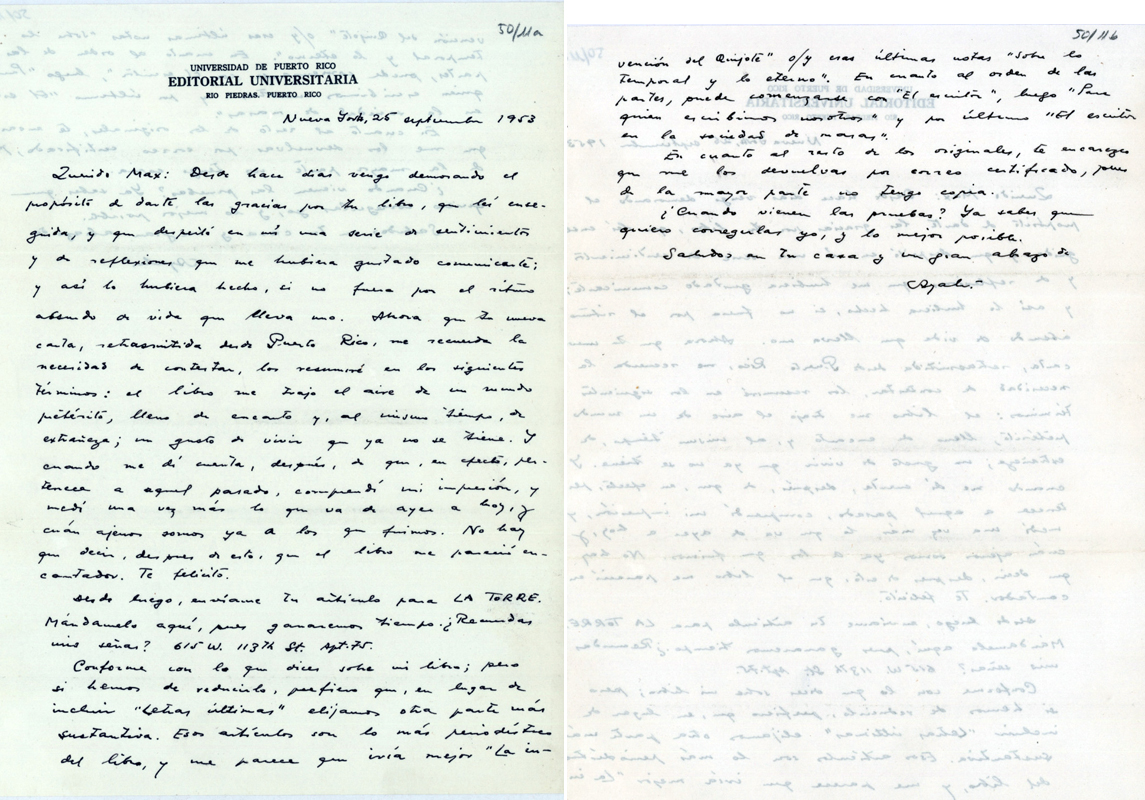 50/11a
UNIVERSIDAD DE PUERTO RICO
EDITORIAL UNIVERSITARIA
RIO PIEDRAS, PUERTO RICO
Nueva York, 25 septiembre 1953
Querido Max: Desde hace días vengo demorando el
propósito de darte las gracias por tu libro, que leí ense-
guida, y que despertó en mí una serie de sentimientos
y de reflexiones que me hubiera gustado comunicarte;
y así lo hubiera hecho, si no fuera por el ritmo
absurdo de vida que lleva uno. Ahora que tu nueva
carta, retrasmitida desde Puerto Rico, me recuerda la
necesidad de contestar, los resumiré en los siguientes
términos: el libro me trajo el aire de un mundo
pretérito, lleno de encanto y, al mismo tiempo, de
extrañeza; un gusto de vivir que ya no se tiene. Y
cuando me di cuenta, después, de que, en efecto, per-
tenece a aquel pasado, comprendí mi impresión, y
medí una vez más lo que va de ayer a hoy, y
cuán ajenos somos ya a los que fuimos. No hay
que decir, despues de esto, que el libro me pareció en-
cantador. Te felicito.
Desde luego, envíame tu artículo para LA TORRE.
Mándamelo aquí, pues ganaremos tiempo. ¿Recuerdas
mis señas? 615 W. 113th St. Apt. 75.
Conforme con lo que dices sobre mi libro; pero
si hemos de reducirlo, prefiero que, en lugar de
incluir "Letras últimas" elijamos otra parte más
sustantiva. Esos artículos son lo más periodístico
del libro, y me parece que iría mejor "La in-
50/11b
vención del Quijote" o/y esas últimas notas "sobre lo
temporal y lo eterno". En cuanto al orden de las
partes, puede comenzarse con "El escritor", luego "Para
quien escribimos nosotros" y por último "El escritor
en la sociedad de masas".
En cuanto al resto de los originales, te encarezco
que me los devuelvas por correo certificado, pues
de la mayor parte no tengo copia.
¿Cuando vienen las pruebas? Ya sabes que
quiero corregirlas yo, y lo mejor posible.
Saludos en tu casa y un gran abrazo de
Ayala.-